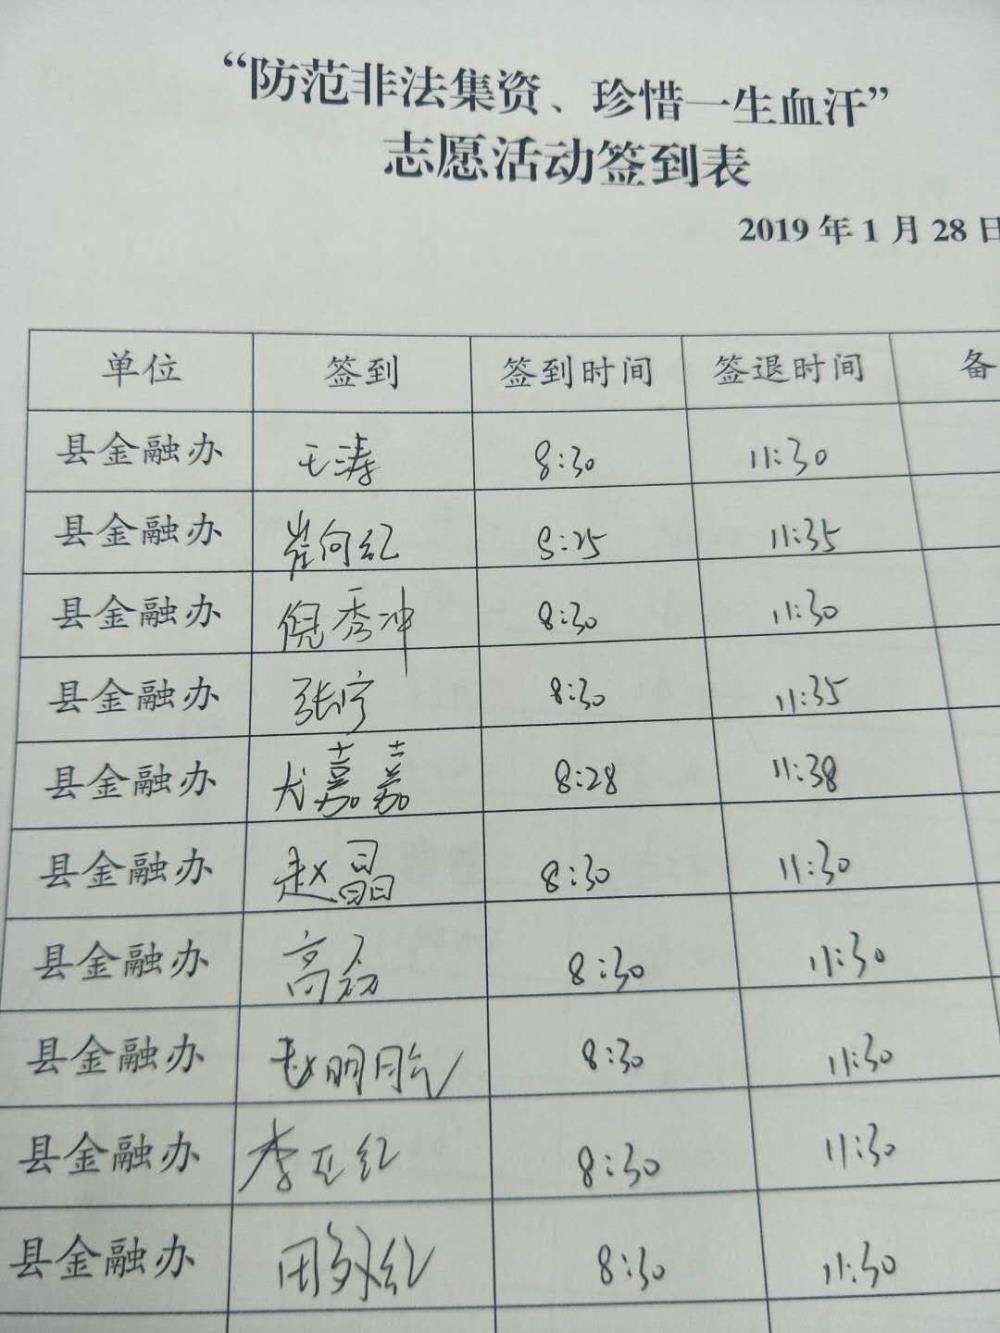 “防范非法集资、珍惜一生血汗”
志愿活动签到表
2019年1月28日
单位 签到 签到时间 签退时间 备
县金融办 王涛 8:30 11:30
县金融办 崔向红 8:25 11:35
县金融办 倪秀冲 8:30 11:30
县金融办 张宁 8:30 11:35
县金融办 尤嘉嘉 8:28 11:38
县金融办 赵晶 8:30 11:30
县金融办 高磊 8:30 11:30
县金融办 8:30 11:30
县金融办 李正红 8:30 11:30
县金融办 8:30 11:30